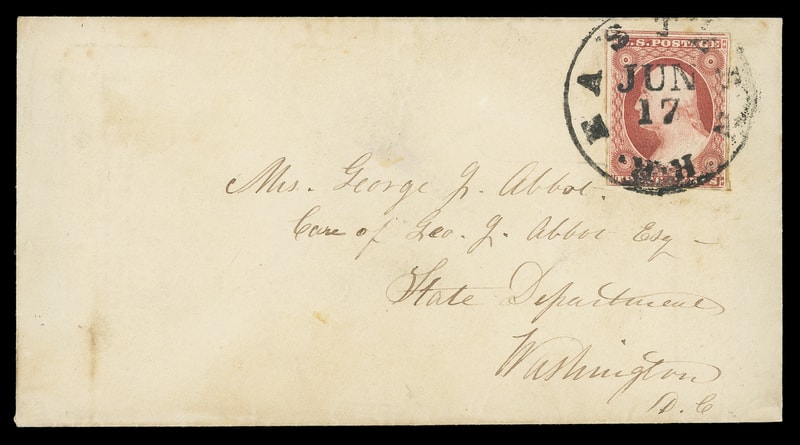 EASTERN
JUN
17
R.R.
U.S. POSTAGE
THREE CENTS
Mrs. George J. Abbot.
Care of Geo. J. Abbot Esq -
State Department
Washington
D.C